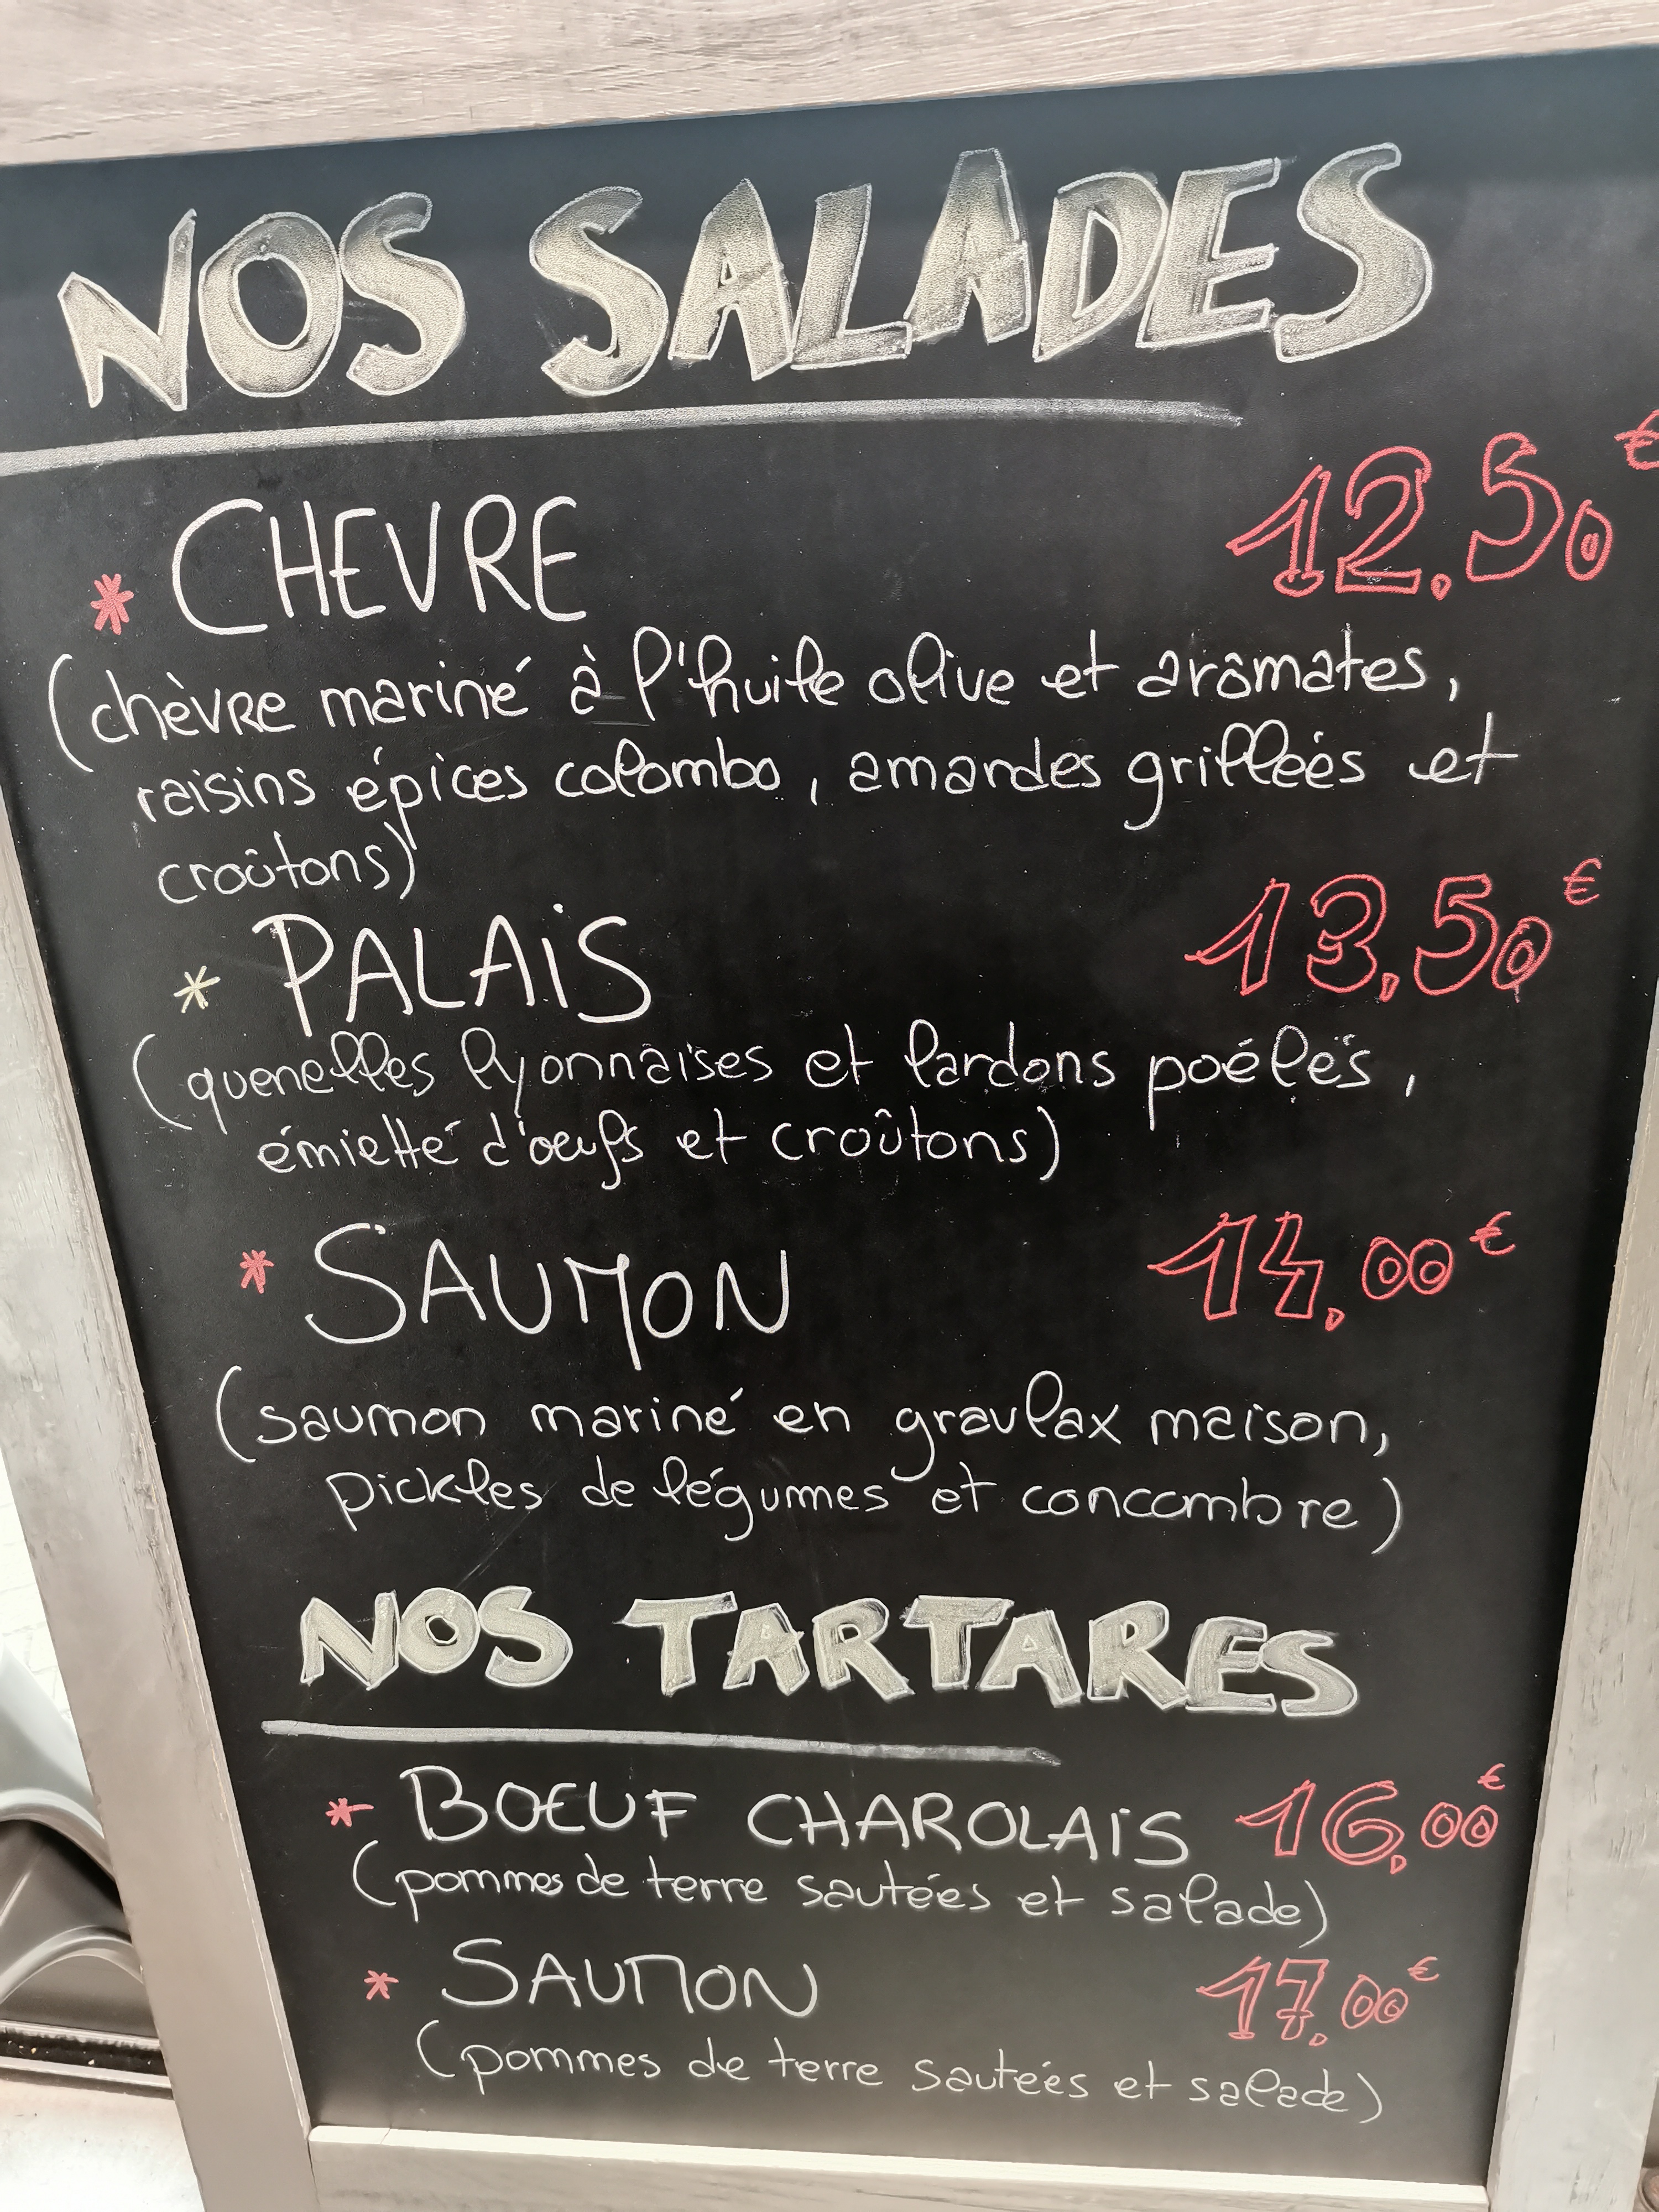 NOS SALADES
* CHEVRE 12.50€
(chèvre mariné à l'huile olive et arômates,
raisins épices colombo, amandes grillées et
croûtons)
* PALAIS 13,50€
(quenelles lyonnaises et lardons poélés,
émietté d'oeufs et croûtons)
* SAUMON 14,00€
(saumon mariné en gravlax maison,
pickles de légumes et concombre)
NOS TARTARES
* BOEUF CHAROLAIS 16,00€
(pommes de terre sautées et salade)
* SAUMON 17,00€
(pommes de terre sautées et salade)